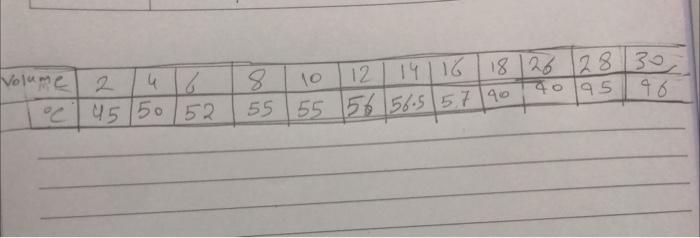 Volume 2 4 6 8 10 12 14 16 18 26 28 30
°C 45 50 52 55 55 56 56.5 5.7 90 90 95 96